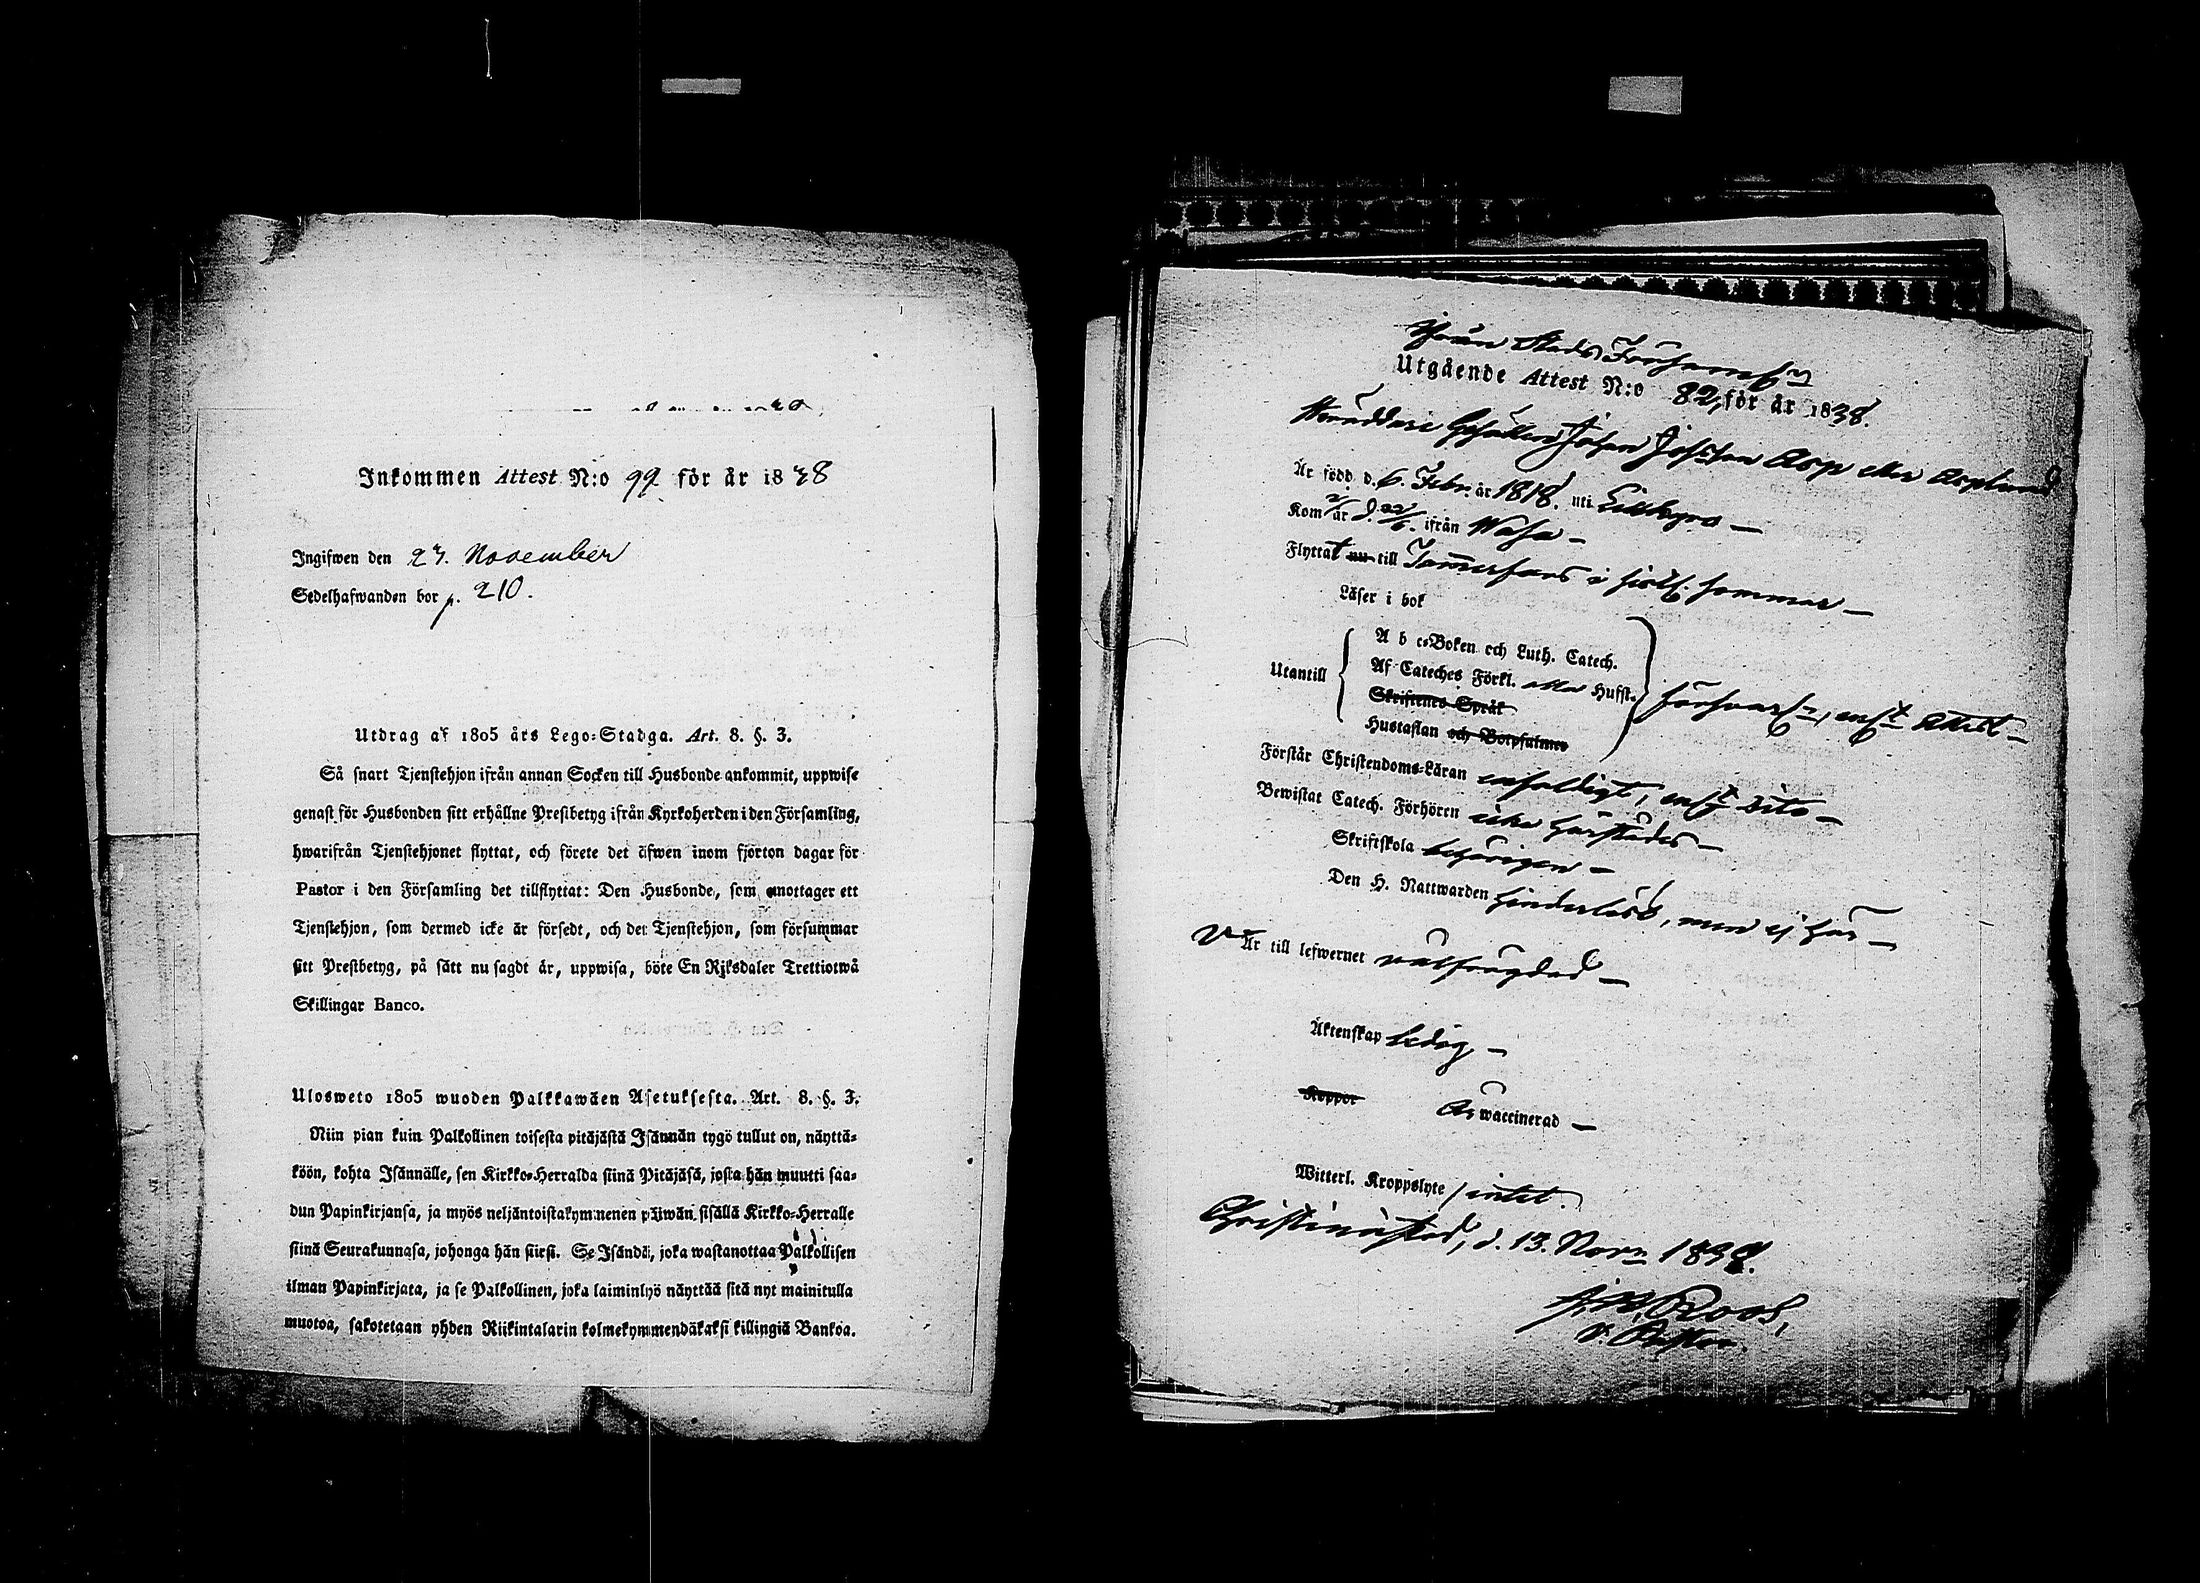 Inkommen Attest N:o 99 för år 1838
Ingifwen den 23. November
Sedelhafwanden bor p. 210.
Utdrag af 1805 års Lego-Stadga. Art. 8. §. 3.
Så snart Tjenstehjon ifrån annan Socken till Husbonde ankommit, uppwise
genast för Husbonden sitt erhållne Prestbetyg ifrån Kyrkoherden i den Församling,
hwarifrån Tjenstehjonet flyttat, och förete det äfwen inom fjorton dagar för
Pastor i den Församling det tillflyttat: Den Husbonde, som emottager ett
Tjenstehjon, som dermed icke är försedt, och det Tjenstehjon, som försummar
sitt Prestbetyg, på sätt nu sagdt är, uppwisa, böte En Riksdaler Trettiotwå
Skillingar Banco.
Ulosweto 1805 wuoden Palkkawäen Asetuksesta. Art. 8. §. 3.
Niin pian kuin Palkollinen toisesta pitäjästä Isännän tygö tullut on, näyttä-
köön, kohta Isännälle, sen Kirkko-Herralda siinä Pitäjäsä, josta hän muutti saa-
dun Papinkirjansa, ja myös neljäntoistakymmenen päiwän sisällä Kirkko-Herralle
siinä Seurakunnasa, johonga hän siirsi. Se Isändä, joka wastanottaa Palkollisen
ilman Papinkirjata, ja se Palkollinen, joka laiminlyö näyttää sitä nyt mainitulla
muotoa, sakotetaan yhden Riikintalarin kolmekymmendäkaksi killingiä Bankoa.
Utgående Attest N:o 82, för år 1838.
Skräddare Gesällen Johan Asp eller Asplund
Är född d. 6. Febr. år 1818. uti
Kom år d. 22/6. ifrån Wasa –
Flyttat nu till Tammerfors i sommar –
Läser i bok
Utantill
A b c-Boken och Luth. Catech.
Af Cateches Förkl. eller Husst.
Skriftenes Språk
Hustaflan och Botpsalmer
attest –
Förstår Christendoms-Läran enfaldigt, dito –
Bewistat Catech. Förhören icke härstädes –
Skriftskola behörigen –
Den H. Nattwarden hinderlöst, men ej här –
Är till lefwernet wälfrägdad –
Äktenskap ledig –
Koppor Är waccinerad –
Witterl. Kroppslyte / intet.
Christinæstad, d. 13. Novr 1838.
Roos,
v. Pastor.